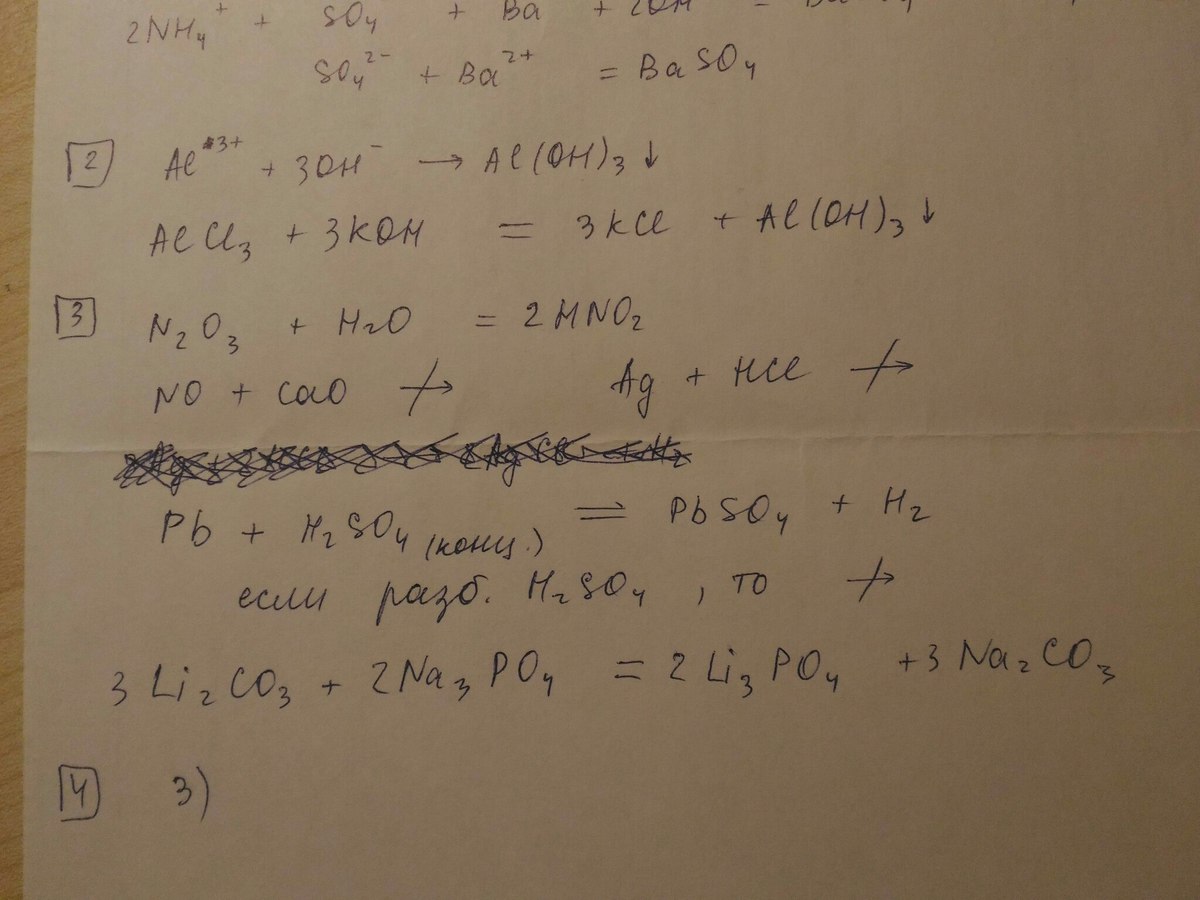 2NH₄⁺ + SO₄ + Ba + 2OH =
SO₄²⁻ + Ba²⁺ = BaSO₄
2 Al³⁺ + 3OH⁻ → Al(OH)₃↓
AlCl₃ + 3KOH = 3KCl + Al(OH)₃↓
3 N₂O₃ + H₂O = 2HNO₂
NO + CaO ↛ Ag + HCl ↛
Pb + H₂SO₄ (конц.) = PbSO₄ + H₂
если разб. H₂SO₄, то ↛
3Li₂CO₃ + 2Na₃PO₄ = 2Li₃PO₄ + 3Na₂CO₃
4 3)